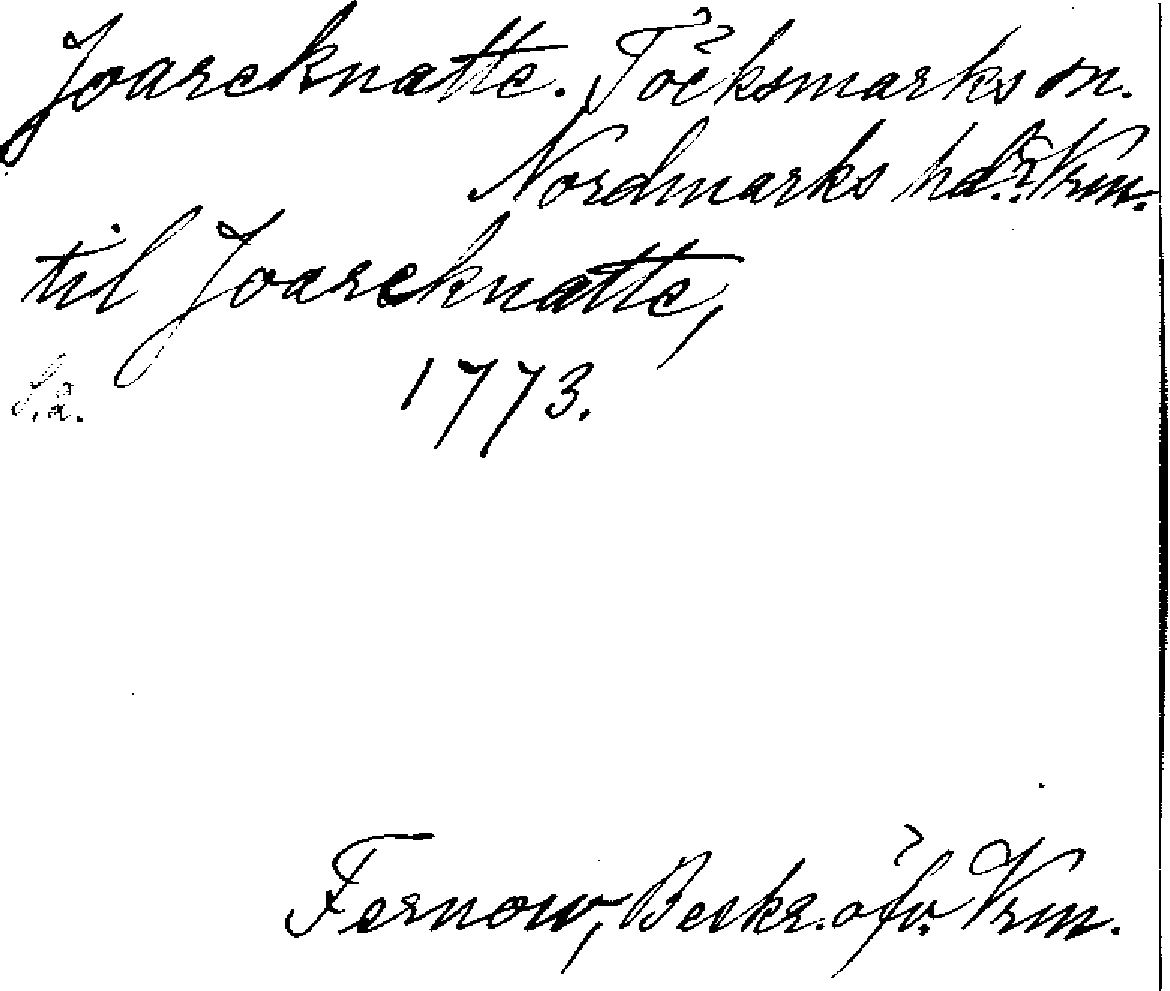 Joareknatte. Töcksmarks sn.
Nordmarks hd. Vrm.
til Joareknatte,
S.å. 1773.
Fernow, Beskr. öfv. Vrm.